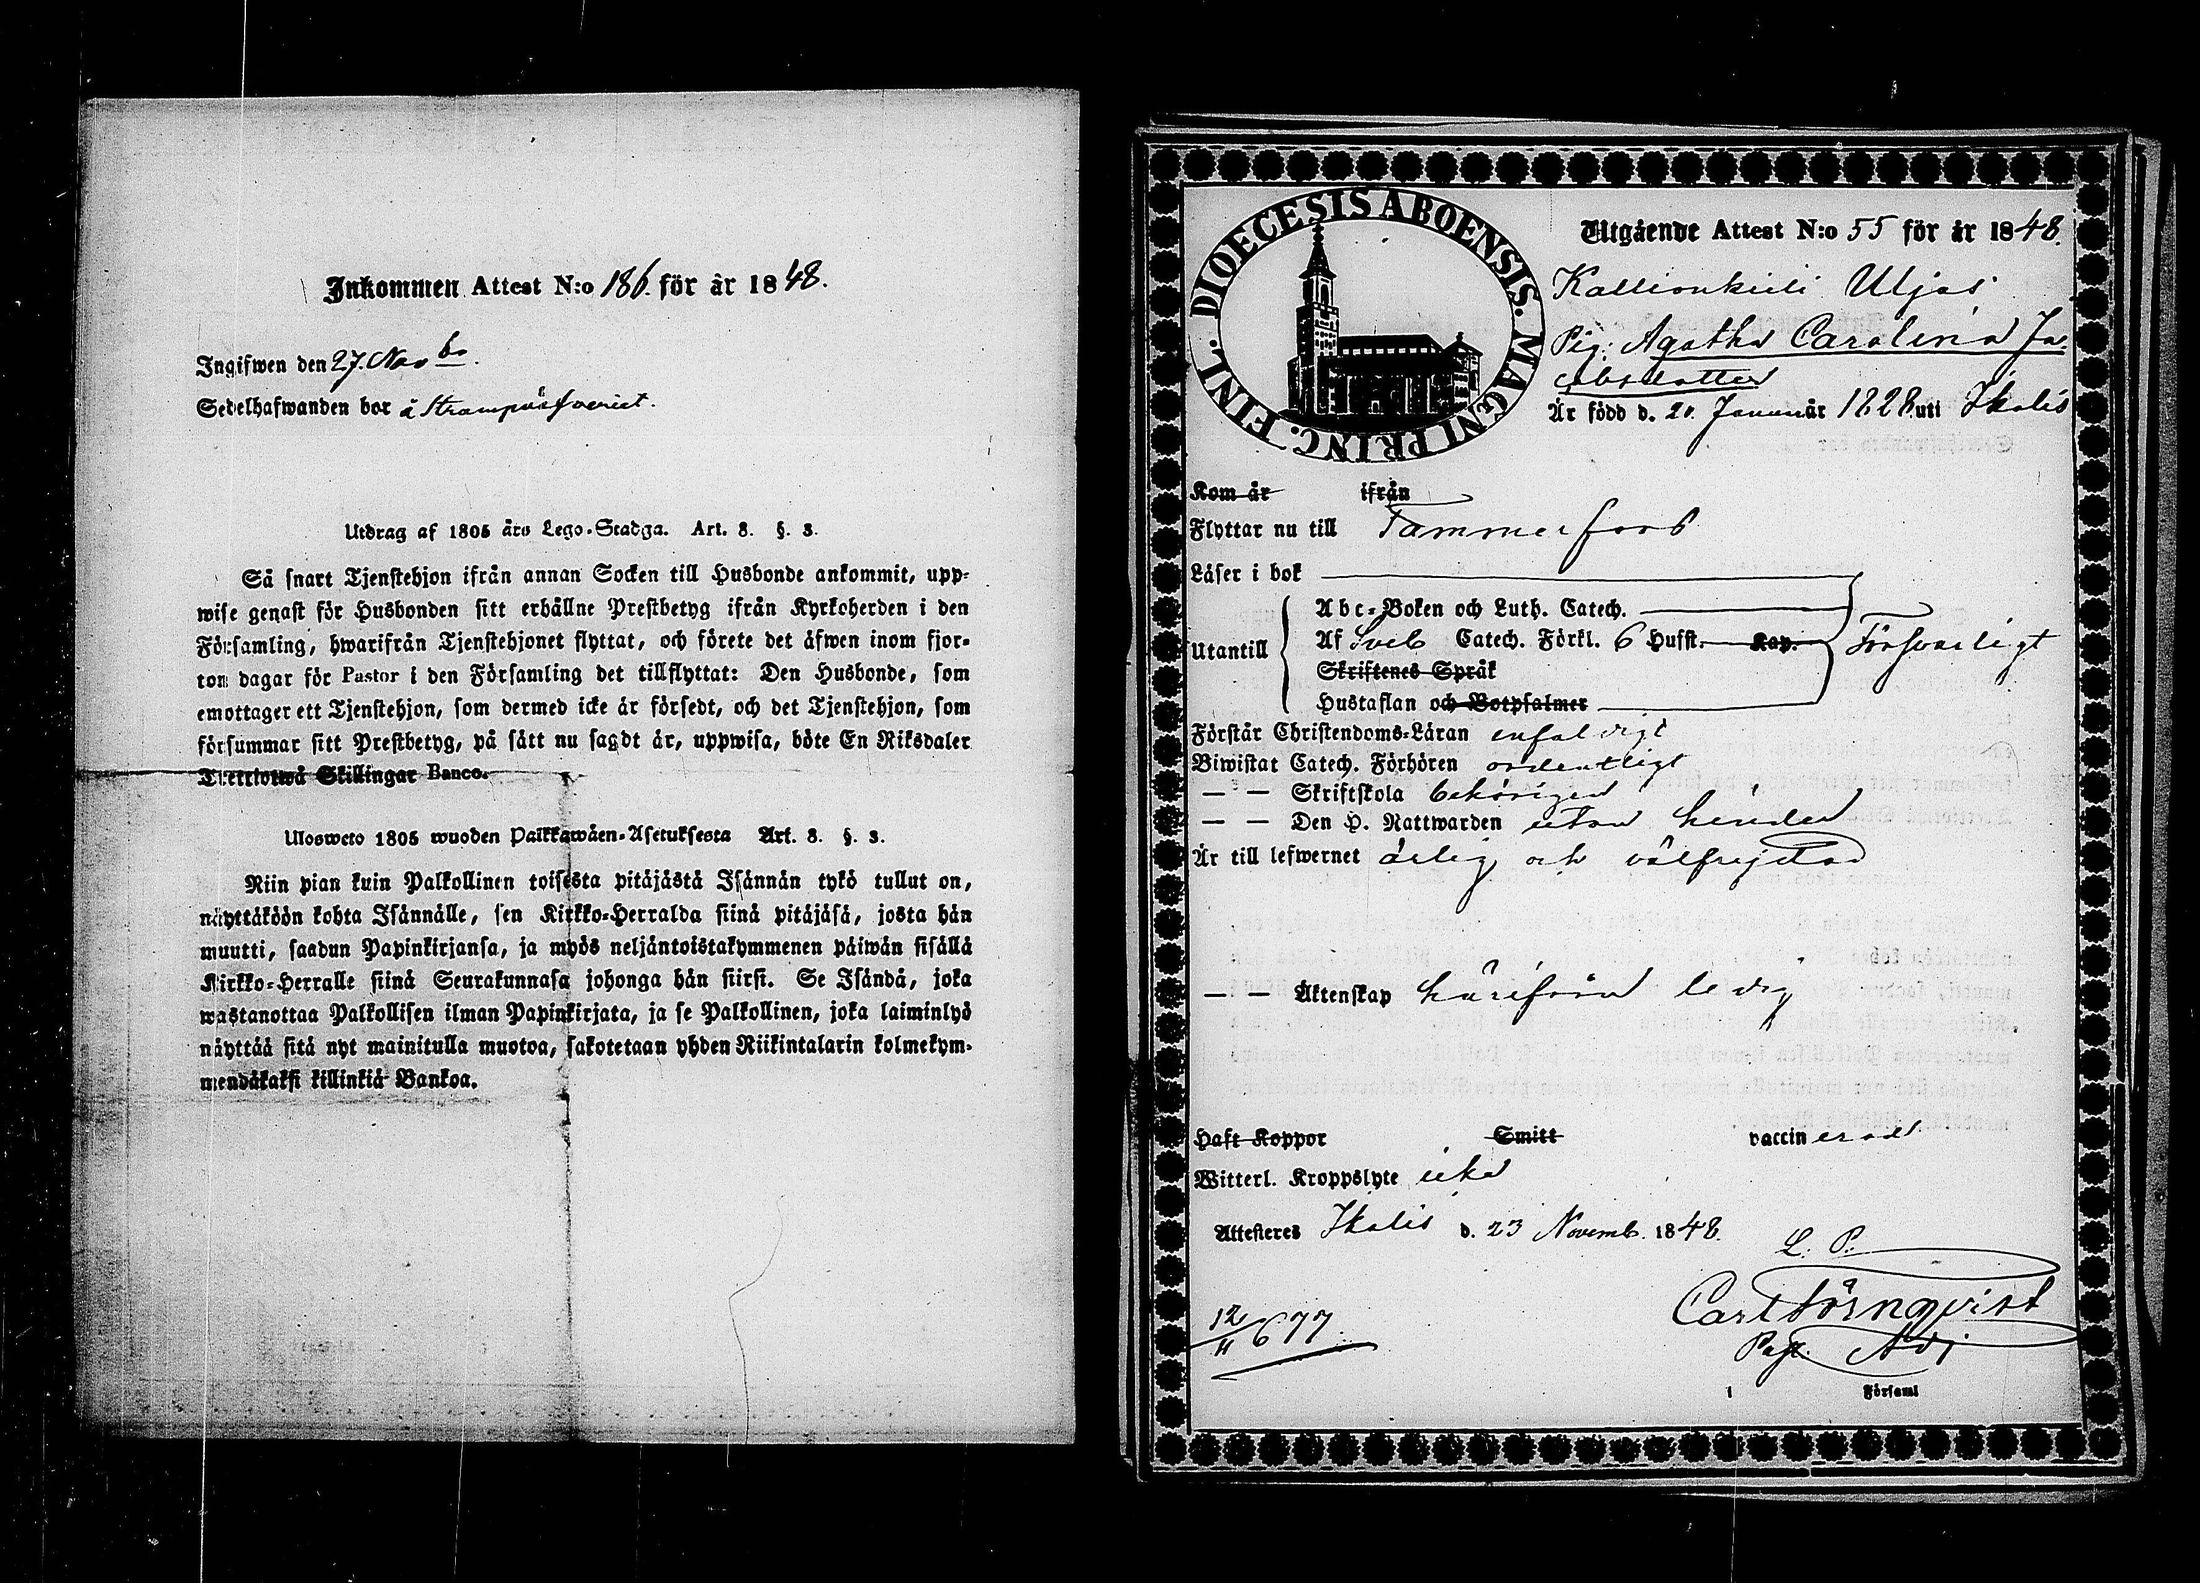 Inkommen Attest N:o 186. för år 1848.
Ingifwen den 27. Novbr.
Sedelhafwanden bor å Strumpväfveriet.
Utdrag af 1805 års Lego-Stadga. Art. 8. §. 3.
Så snart Tjenstehjon ifrån annan Socken till Husbonde ankommit, upp-
wise genast för Husbonden sitt erhållne Prestbetyg ifrån Kyrkoherden i den
Församling, hwarifrån Tjenstehjonet flyttat, och förete det äfwen inom fjor-
ton dagar för Pastor i den Församling det tillflyttat: Den Husbonde, som
emottager ett Tjenstehjon, som dermed icke är försedt, och det Tjenstehjon, som
försummar sitt Prestbetyg, på sätt nu sagdt är, uppwisa, böte En Riksdaler
Trettiotwå Skillingar Banco.
Ulosweto 1805 wuoden Palkkawäen-Asetuksesta Art. 8. §. 3.
Niin pian kuin Palkollinen toisesta pitäjästä Isännän tykö tullut on,
näyttäköön kohta Isännälle, sen Kirkko-Herralda siinä pitäjäsä, josta hän
muutti, saadun Papinkirjansa, ja myös neljäntoistakymmenen päiwän sisällä
Kirkko-Herralle siinä Seurakunnasa johonga hän siirsi. Se Isändä, joka
wastanottaa Palkollisen ilman Papinkirjata, ja se Palkollinen, joka laiminlyö
näyttää sitä nyt mainitulla muotoa, sakotetaan yhden Riikintalarin kolmekym-
mendäkaksi killinkiä Bankoa.
DIOECESIS ABOENSIS. MAGNI PRINC. FINL.
Utgående Attest N:o 55 för år 1848.
Kallionkieli Uljas
Pig: Agatha Carolina Ja-
cobsdotter
Är född d. 20. Januar år 1828 uti Ikalis
Kom år ifrån
Flyttar nu till Tammerfors
Läser i bok
Utantill
Abc-Boken och Luth. Catech.
Af Sveb Catech. Förkl. 6 Hufst. Kap.
Skriftenes Språk
Hustaflan och Botpsalmer
Försvarligt
Förstår Christendoms-Läran enfaldigt
Biwistat Catech. Förhören ordentligt
— — Skriftskola behörigen
— — Den H. Nattwarden utan hinder
Är till lefwernet ärlig och välfrejdad
— — Äktenskap härifrån ledig
Haft Koppor Smitt vaccinerad
Witterl. Kroppslyte icke
Attesteres Ikalis d. 23 Novemb. 1848.
L. P.
Carl Törnqvist
Past. Adj
12/11 677
i Förfaml